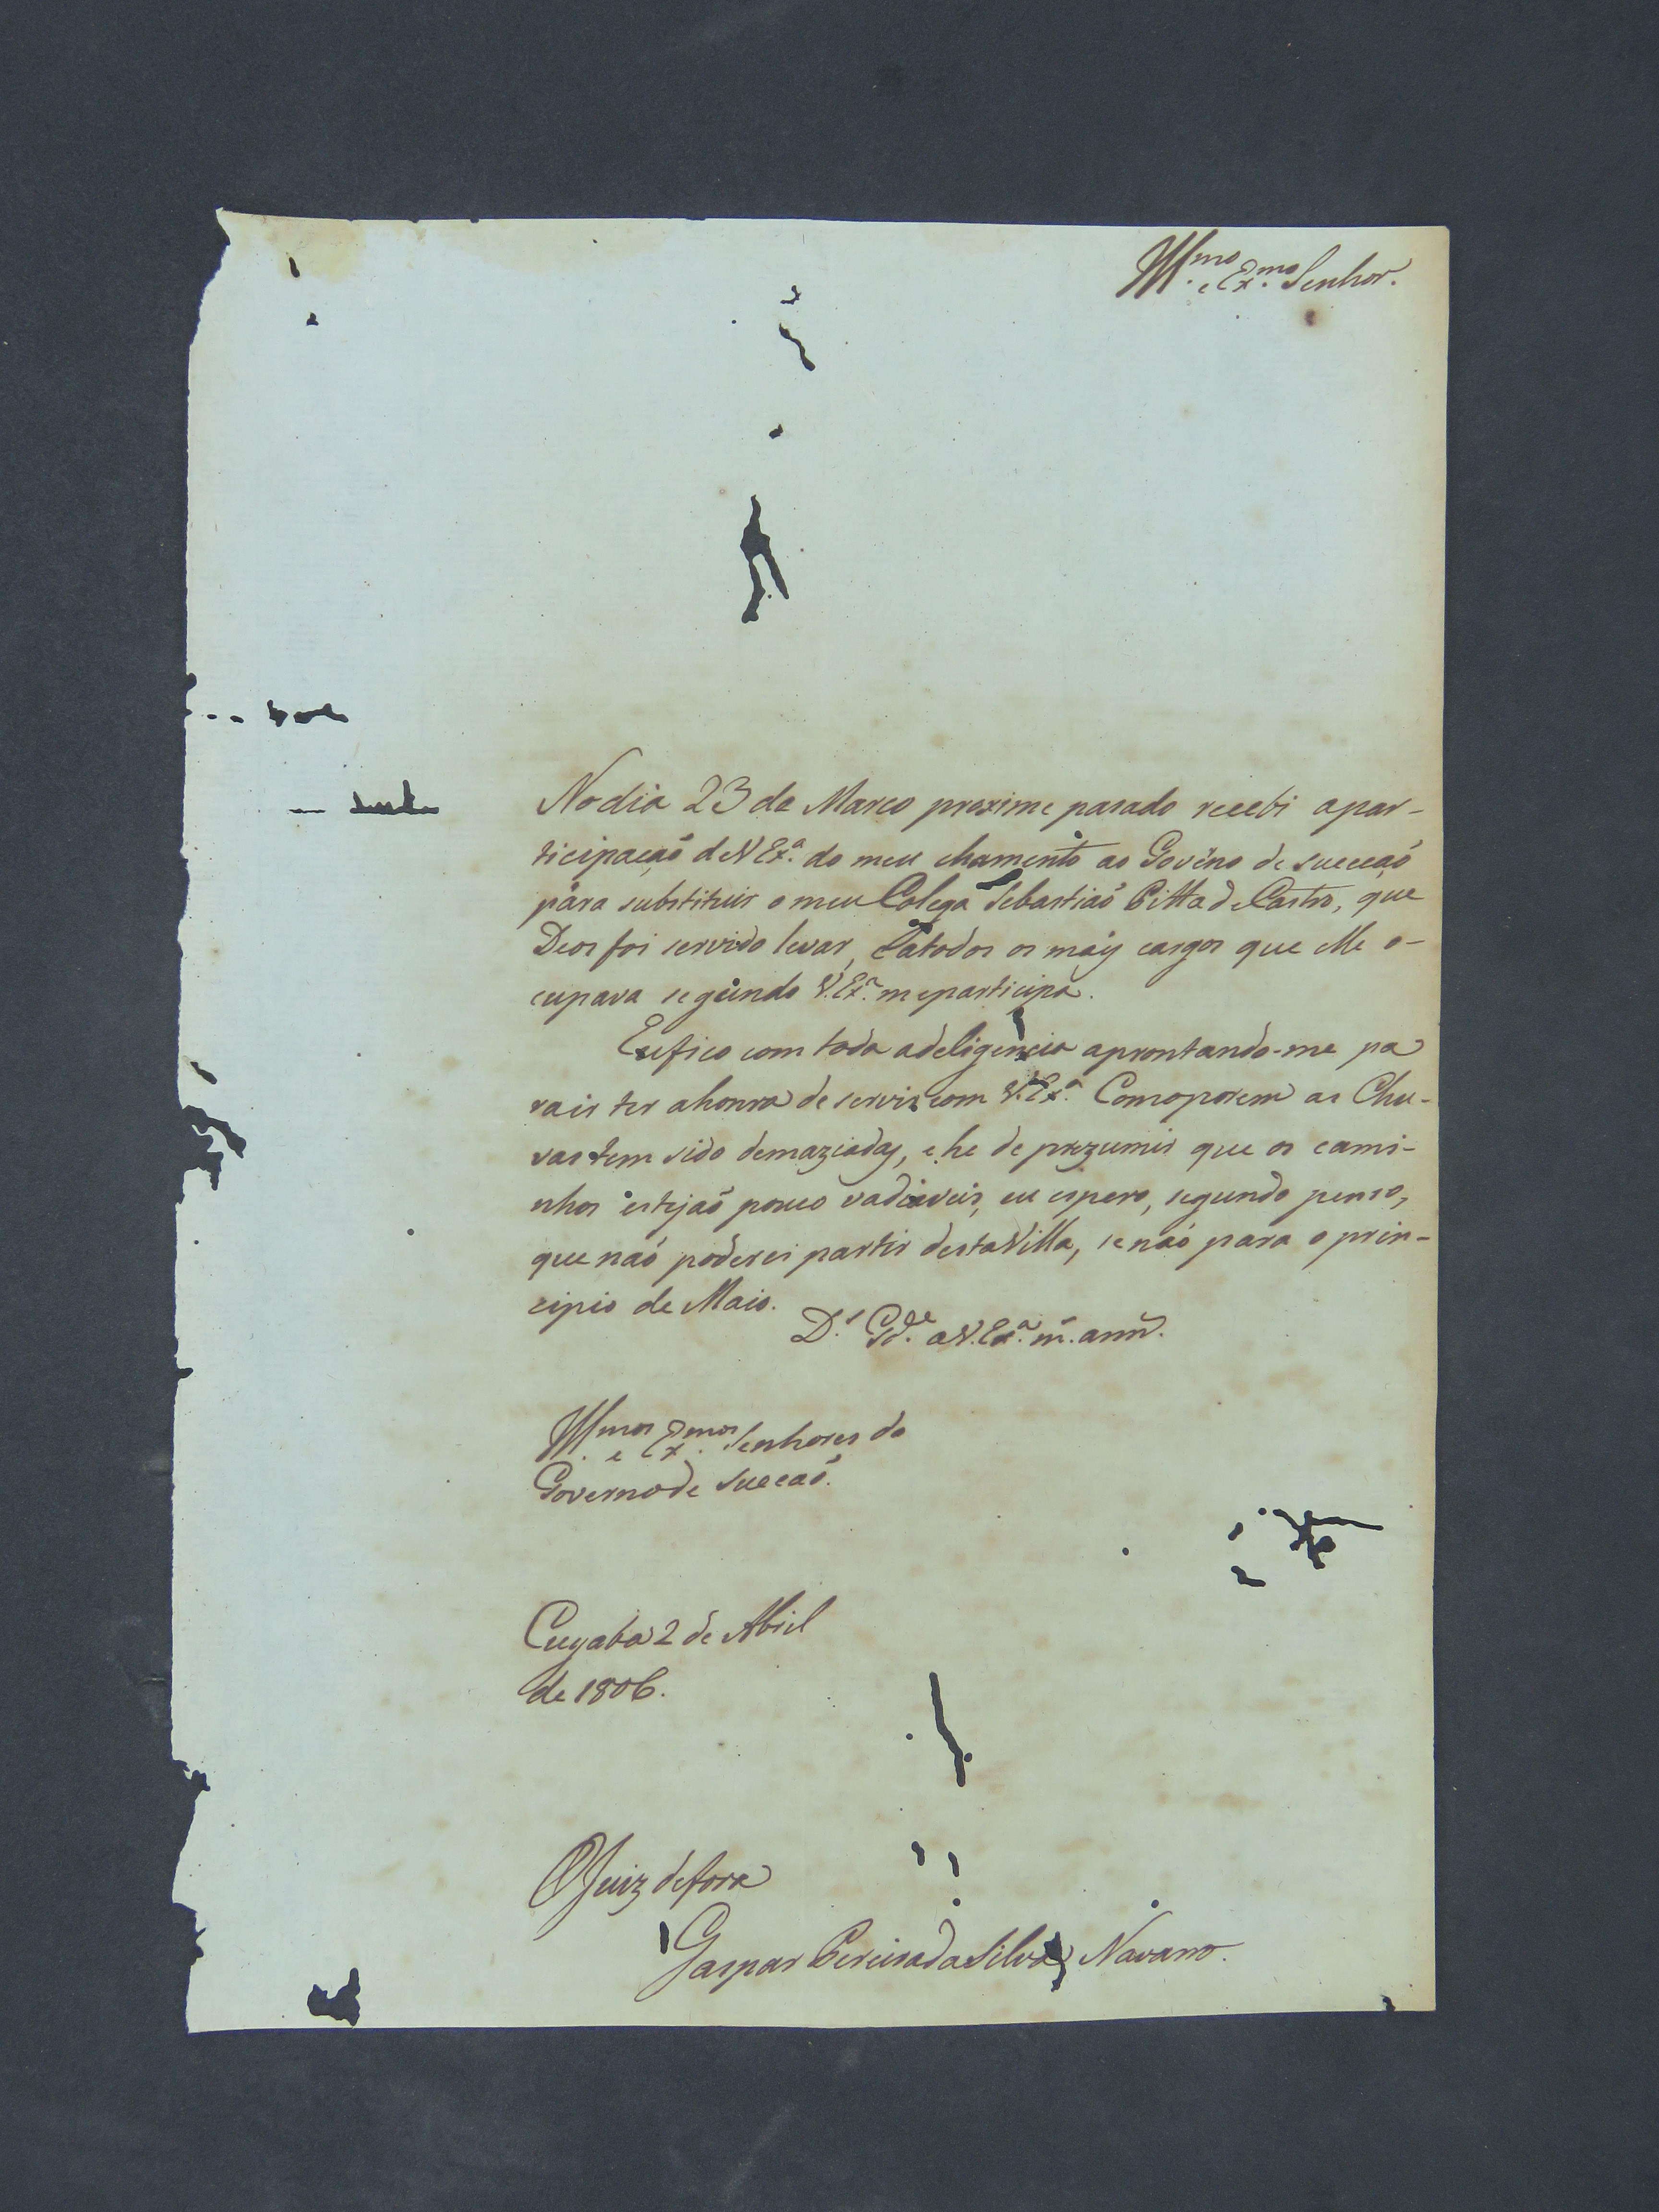 Ill.mo e Ex.mo Senhor.
No dia 23 de Marco proximo pasado recebi apar-
ticipaçaõ de V Ex.ª do meu chamento ao Govêno de succeaõ
para substituir o meu Colega Sebastiaõ Pitta de Castro, que
Deos foi servido levar, e atodos os mays cargos que elle o-
cupava segundo V. Ex.ª meparticipa.
Eu fico com toda adeligencia aprontando-me pa
ra ir ter ahonra de servir com V. Ex.ª Comoporem as Chu-
vas tem sido demaziadas, e he de prezumir que os cami-
nhos estejaõ pouco vadiaveis, eu espero, segundo penso,
que naõ poderei partir desta Villa, se naõ para o prin-
cipio de Maio.
D.s G.de a V. Ex.ª m. ann.
Ill.mos e Ex.mos Senhores do
Governo de Succaõ.
Cuyaba 2 de Abril
de 1806.
O Juiz de fora
Gaspar Pereira da Silva Navarro.